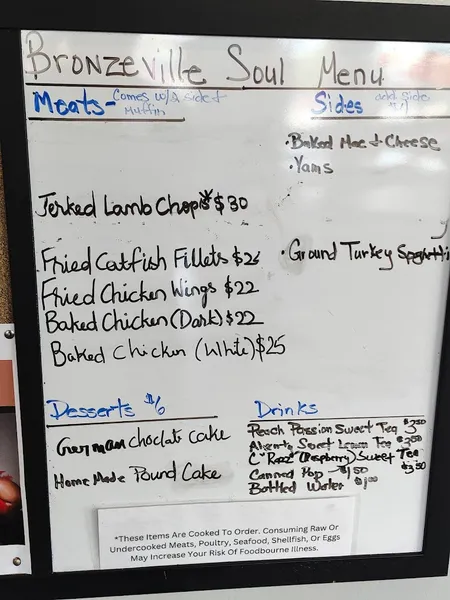 Bronzeville Soul Menu
Meats- Comes w/2 sides &
Muffin
Sides add side
• Baked Mac & Cheese
• Yams
Jerked Lamb Chops* $30
Fried Catfish Fillets $26
• Ground Turkey Spaghetti
Fried Chicken Wings $22
Baked Chicken (Dark) $22
Baked Chicken (White) $25
Desserts $6
German choclate cake
Home Made Pound Cake
Drinks
Peach Passion Sweet Tea $3.50
Sweet Lemon Tea $3.50
C "Razz" (Raspberry) Sweet Tea $3.50
Canned Pop - $1.50
Bottled Water $1.00
*These Items Are Cooked To Order. Consuming Raw Or
Undercooked Meats, Poultry, Seafood, Shellfish, Or Eggs
May Increase Your Risk Of Foodbourne Illness.